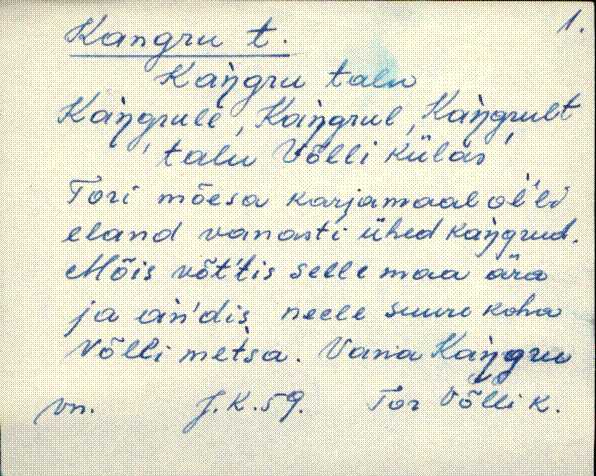 1.
Kangru t.
Kaŋgru talu
Kaŋgrule, Kaŋgrul, Kaŋgrult
talu Võlli külas
Tori mõesa karjamaal ol'li
eland vanasti ühed kaŋgrud.
Mõis võt'tis selle maa ära
ja an'dis neele suure koha
Võlli metsa. Vana Kaŋgru
vn. J.K.59. Tor Võlli k.